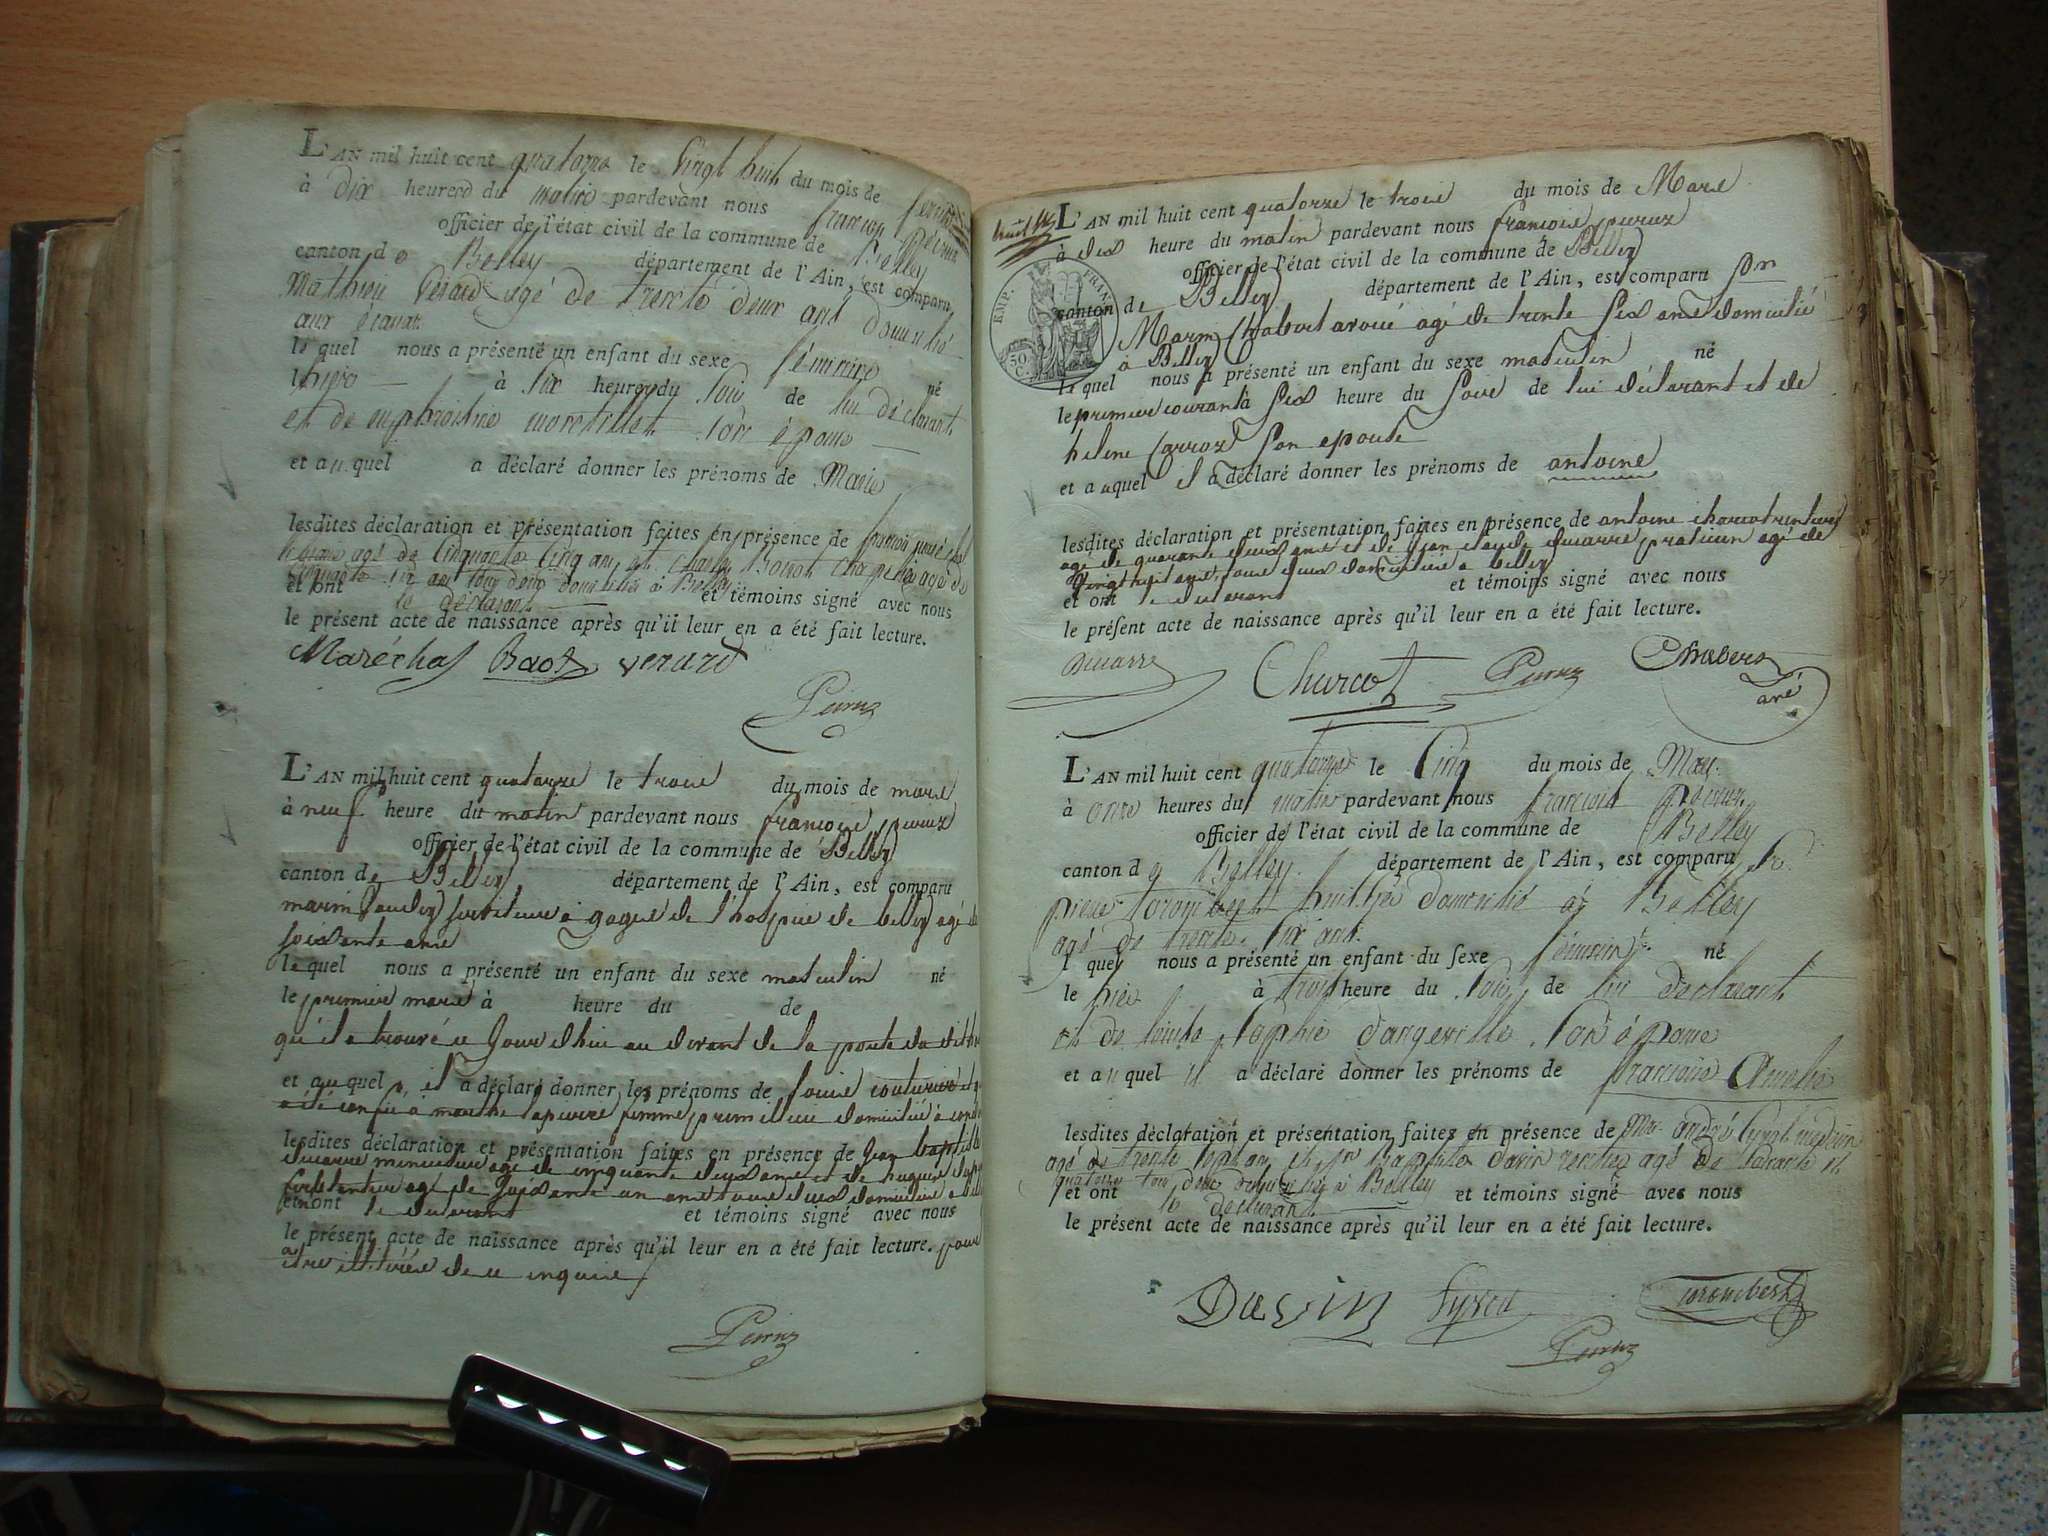 L'AN mil huit cent quatorze le vingt huit du mois de fevrier
à dix heures du matin pardevant nous françois Peiruz
officier de l'état civil de la commune de Belley
canton de Belley département de l'Ain, est comparu
Mathieu agé de trente deux ans domicilié
aux
le quel nous a présenté un enfant du sexe féminin né
hier à six heures du soir de lui déclarant
et de son épouse
et au quel a déclaré donner les prénoms de Marie
lesdites déclaration et présentation faites en présence de françois
agé de Cinquante Cinq ans et Charles agé de
ans tous deux domiciliés à Belley
et ont le déclarant et témoins signé avec nous
le présent acte de naissance après qu'il leur en a été fait lecture.
Maréchal verard
Peiruz
L'AN mil huit cent quatorze le trois du mois de mars
à neuf heure du matin pardevant nous françois peiruz
officier de l'état civil de la commune de Belley
canton de Belley département de l'Ain, est comparu
marin serviteur à gages de l'hospice de belley agé de
soixante ans
le quel nous a présenté un enfant du sexe masculin né
le premier mars à heure du de
qu'il a trouvé ce jour d'hui au devant de la porte dudit
et au quel il a déclaré donner les prénoms de
a été confié à femme domicilié à
lesdites déclaration et présentation faites en présence de Jean baptiste
ducarre agé de cinquante deux ans et de hugues
agé de soixante un ans tous deux domicilié a
et ont le declarant et témoins signé avec nous
le présent acte de naissance après qu'il leur en a été fait lecture. pour
être illitérés de ce enquis
Peiruz
L'AN mil huit cent quatorze le trois du mois de Mars
à dix heure du matin pardevant nous françois peiruz
officier de l'état civil de la commune de Belley
EMP. FRAN.
50 C.
canton de Belley département de l'Ain, est comparu
Marin Chabert avoué agé de trente six ans domicilié
à Belley
le quel nous a présenté un enfant du sexe masculin né
le premier courant à six heure du soir de lui déclarant et de
helene son epouse
et a uquel il a déclaré donner les prénoms de antoine
lesdites déclaration et présentation faites en présence de antoine charcot rentier
agé de quarante deux ans et de Jean claude ducarre praticien agé de
vingt huit ans, tous deux domicilié a belley
et ont le declarant et témoins signé avec nous
le présent acte de naissance après qu'il leur en a été fait lecture.
Ducarre Charcot Peiruz Chabert
ané
L'AN mil huit cent quatorze le Cinq du mois de Mars
à onze heures du matin pardevant nous françois Peiruz
officier de l'état civil de la commune de Belley
canton de Belley département de l'Ain, est comparu
pierre Torombert domicilié à Belley
agé de trente six ans
l quel nous a présenté un enfant du sexe féminin né
le hier à trois heure du soir de lui déclarant
et de sophie d'angeville son épouse
et au quel il a déclaré donner les prénoms de françoise Amelie
lesdites déclaration et présentation faites en présence de Mr. andré médecin
agé de trente ans et Jn Baptiste Davin rentier agé de
tous deux domiciliés à Belley
et ont le déclarant et témoins signé avec nous
le présent acte de naissance après qu'il leur en a été fait lecture.
Davin torombert
Peiruz